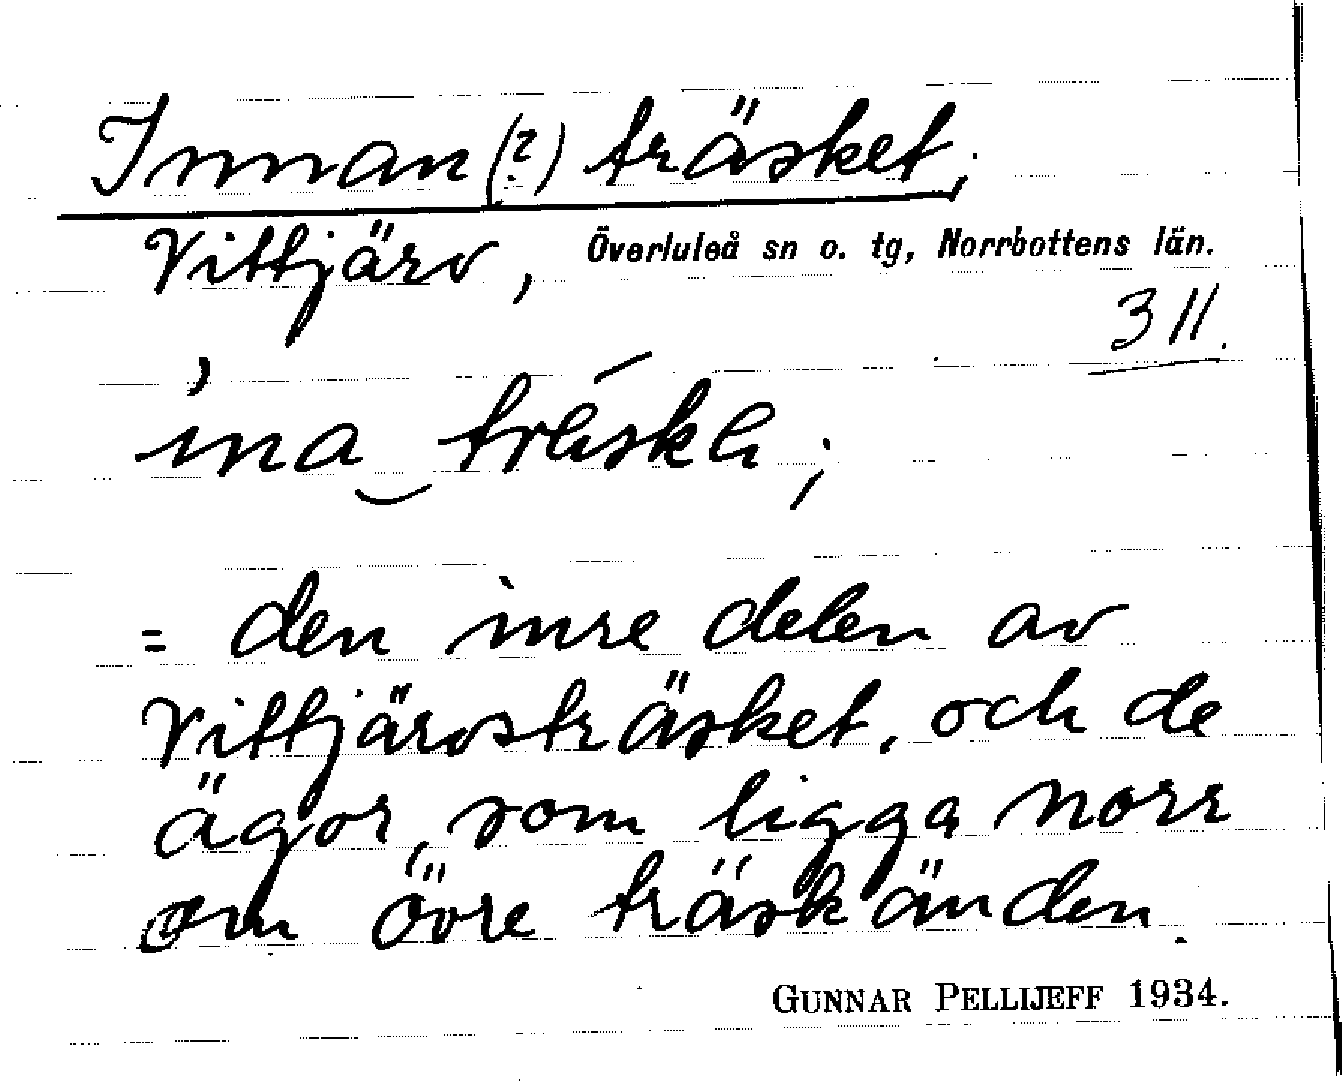 Innan(?) träsket;
Vittjärv, Överluleå sn o. tg, Norrbottens län.
311.
ina träskh;
= den inre delen av
Vittjärvsträsket, och de
ägor, som ligga norr
om övre träskänden.
GUNNAR PELLIJEFF 1934.